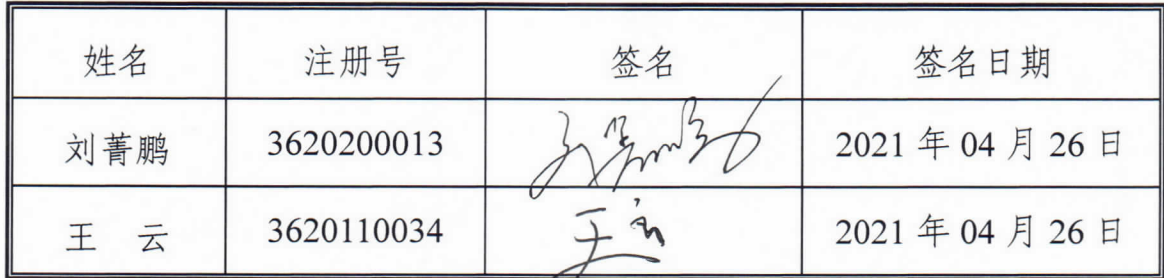 姓名 注册号 签名 签名日期
刘菁鹏 3620200013 刘菁鹏 2021 年 04 月 26 日
王 云 3620110034 王云 2021 年 04 月 26 日